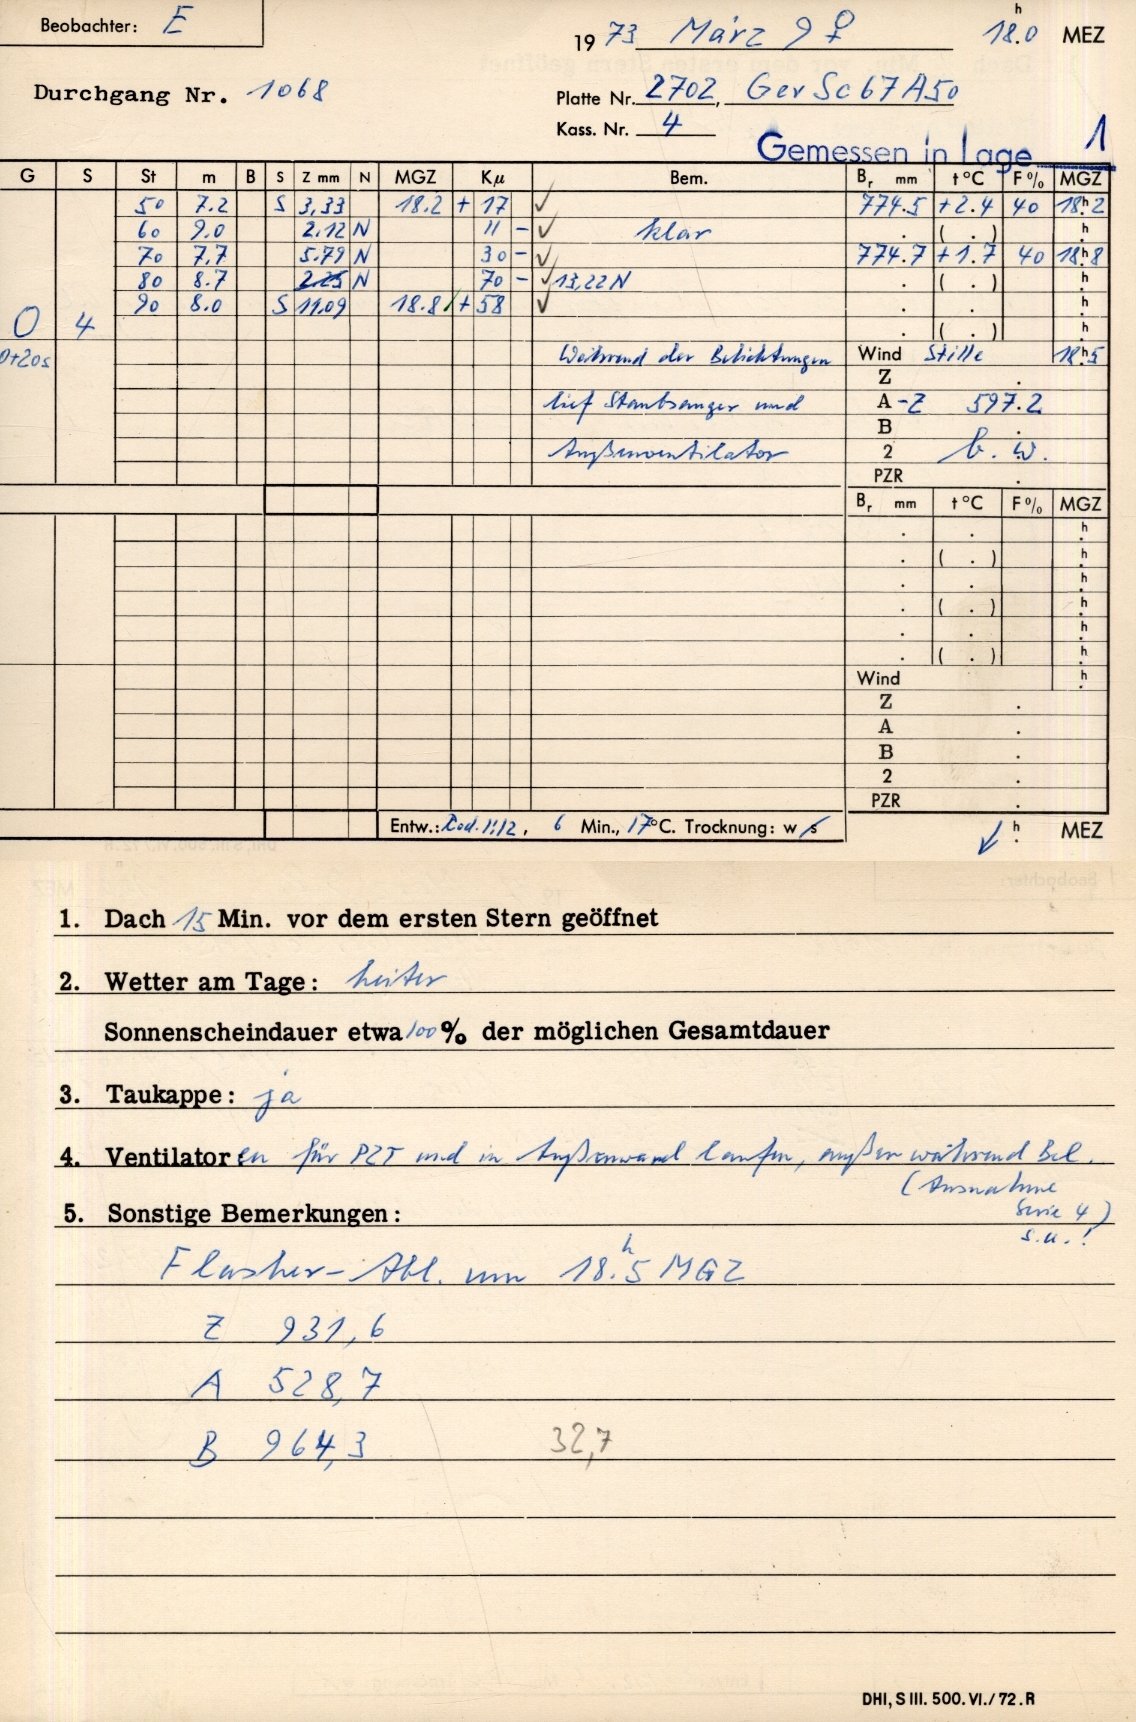 Beobachter: E
1973 März 9 ♀ 18.0 h MEZ
Durchgang Nr. 1068
Platte Nr. 2702, GevSc67A50
Kass. Nr. 4
Gemessen in Lage 1
G S St m B S Z mm N MGZ Kμ Bem. Br mm t°C F% MGZ
50 7.2 S 3,33 18.2 + 17 ✓ 774.5 +2.4 40 18h.2
60 9.0 2.12 N 11 - ✓ klar . ( . ) h.
70 7.7 5.79 N 30 - ✓ 774.7 +1.7 40 18h.8
80 8.7 2.25 N 70 - ✓ 13,22 N . ( . ) h.
90 8.0 S 11.09 18.8 + 58 ✓ . . h.
O 4 ( . ) h.
0+20s Während der Belichtungen Wind Stille 18h.5
Z .
lief Staubsauger und A-Z 597.2
B .
Außenventilator 2 b. w.
PZR .
Br mm t°C F% MGZ
. . h.
. ( . ) h.
. . h.
. ( . ) h.
. . h.
. ( . ) h.
Wind h.
Z .
A .
B .
2 .
PZR .
Entw.: Rod. 1:12, 6 Min., 17°C. Trocknung: w/s
✓ h. MEZ
1. Dach 15 Min. vor dem ersten Stern geöffnet
2. Wetter am Tage: heiter
Sonnenscheindauer etwa 100 % der möglichen Gesamtdauer
3. Taukappe: ja
4. Ventilator:en für PZT und in Außenwand laufen, außer während Bel.
(Ausnahme
Serie 4)
5. Sonstige Bemerkungen:
s.u.!
Flasher-Abl. um 18h.5 MGZ
Z 931,6
A 528,7
B 964,3 32,7
DHI, S III. 500. VI./72. R